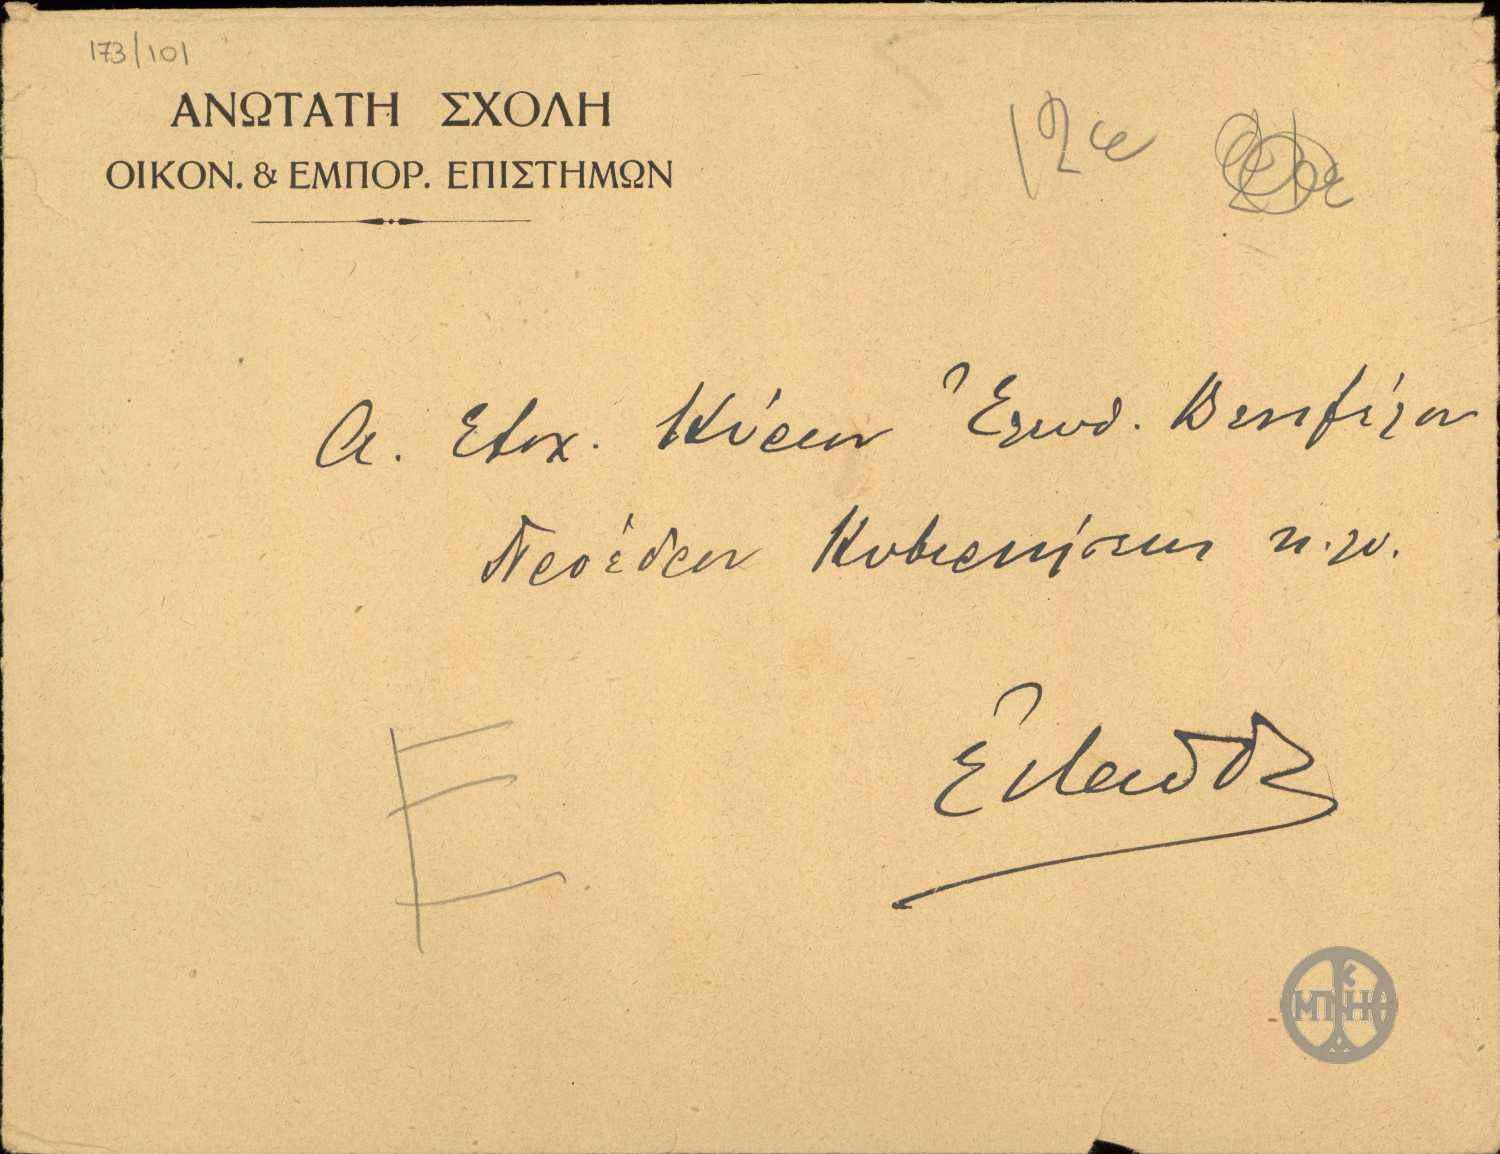 173/101
ΑΝΩΤΑΤΗ ΣΧΟΛΗ
ΟΙΚΟΝ. & ΕΜΠΟΡ. ΕΠΙΣΤΗΜΩΝ
Α. Εξοχ. Κύριον Ἐλευθ. Βενιζέλον
Πρόεδρον Κυβερνήσεως κ.λπ.
Ἐνταῦθα
Ε